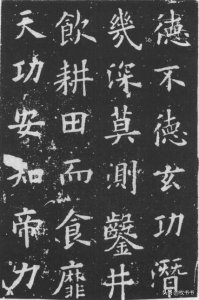 德不德玄功潛
幾深莫測鑿井
飲耕田而食靡
天功安知帝力